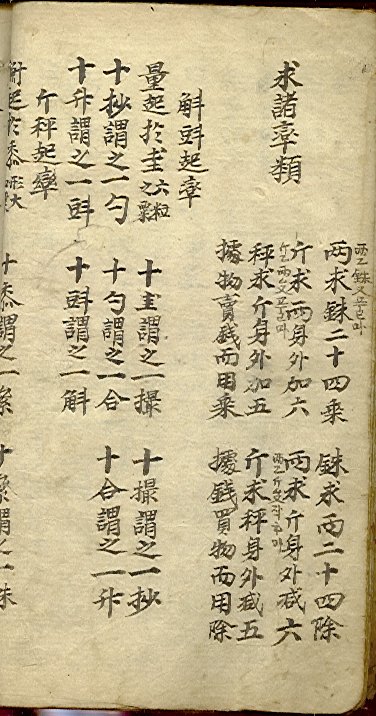 求諸率類
兩求銖二十四乘 銖求兩二十四除
斤求兩身外加六 兩求斤身外减六
秤求斤身外加五 斤求秤身外减五
據物賣錢而用乘 據錢買物而用除
斛㪷起率
量起於圭六粒之粟 十圭謂之一撮 十撮謂之一抄
十抄謂之一勺 十勺謂之一合 十合謂之一升
十升謂之一㪷 十㪷謂之一斛
斤秤起率
衡起於黍形大 十黍謂之一絫 十絫謂之一銖